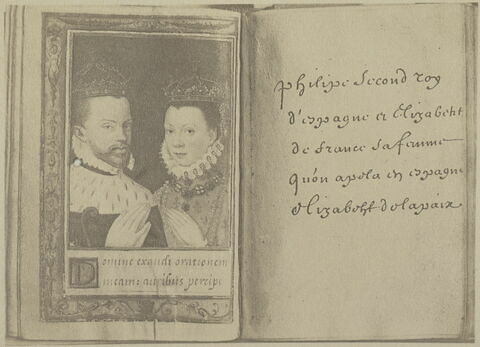 Domine exaudi orationem
meam: auribus percipe
philipe second roy
d'espagne et Elizabeht
de france sa femme
qu'on apela en espagne
elizabeht de la paix